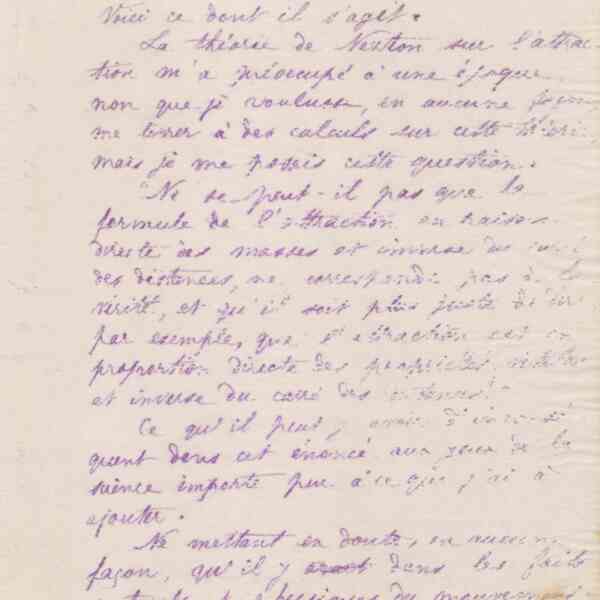 Voici ce dont il s'agit.
La théorie de Newton sur l'attrac-
tion m'a préoccupé à une époque
non que je voulusse, en aucune façon
me livrer à des calculs sur cette théorie
mais je me posais cette question.
"Ne se peut-il pas que la
formule de l'attraction en raison
directe des masses et inverse du carré
des distances, ne corresponde pas à la
vérité, et qu'il soit plus juste de dire
par exemple, que l'attraction est en
proportion directe des propriétés
et inverse du carré des distances?"
Ce qu'il peut y avoir d'
quent dans cet énoncé aux yeux de la
sience importe peu à ce que j'ai à
ajouter.
Ne mettant en doute, en aucune
façon, qu'il y dans les faits
du mouvement